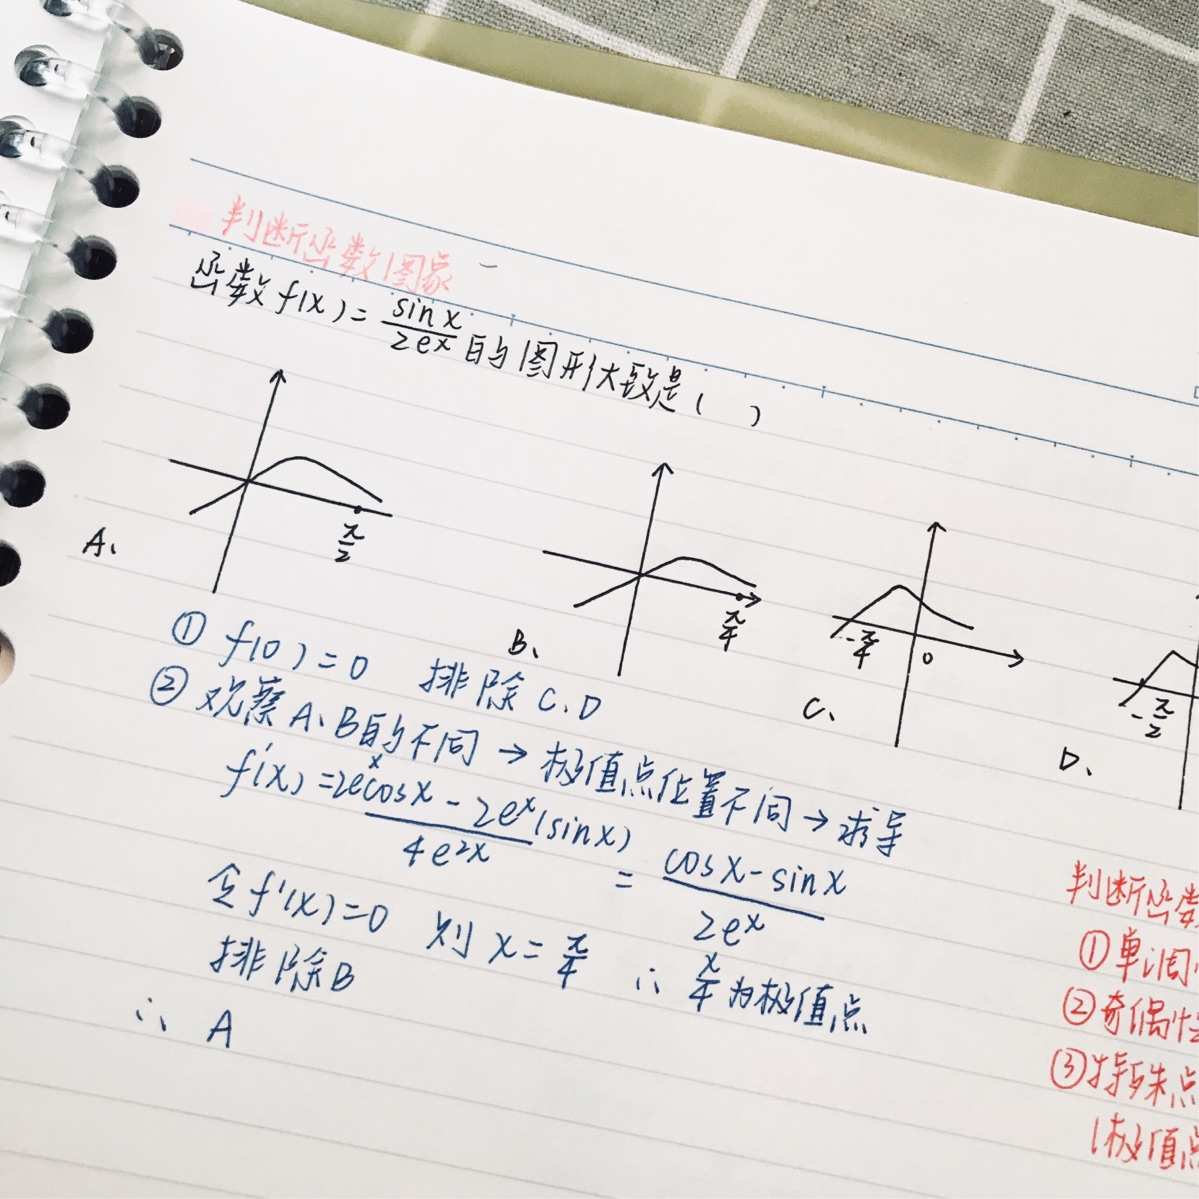 判断函数图象
函数f(x)=sinx/2eˣ的图形大致是( )
A、
π/2
B、
π/4
C、
-π/4
0
D、
-π/2
① f(0)=0 排除C.D
② 观察A、B的不同→极值点位置不同→求导
f'(x)=2eˣcosx-2eˣ(sinx)/4e²ˣ = cosx-sinx/2eˣ
令f'(x)=0 则x=π/4 ∴π/4为极值点
排除B
∴ A
判断函数
①单调
②奇偶性
③特殊点
(极值点